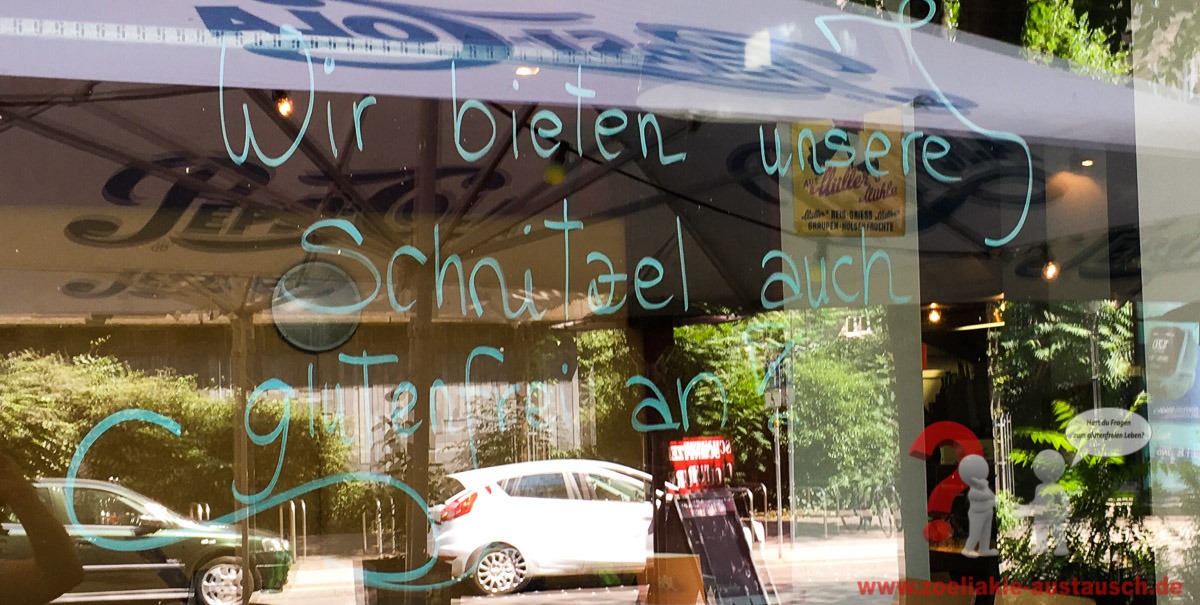 Wir bieten unsere
Schnitzel auch
glutenfrei an!
Müller
Mühle
GRAUPEN-HÜLSENFRÜCHTE
PEPSI
Hast du Fragen
zum glutenfreien Leben?
?
www.zoeliakie-austausch.de